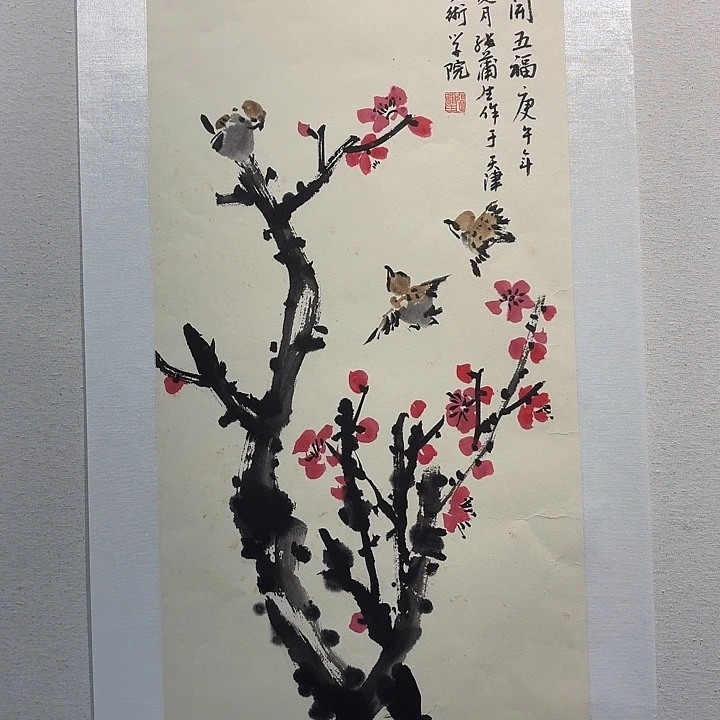 開五福 庚午年
月張蒲生作于天津
術学院